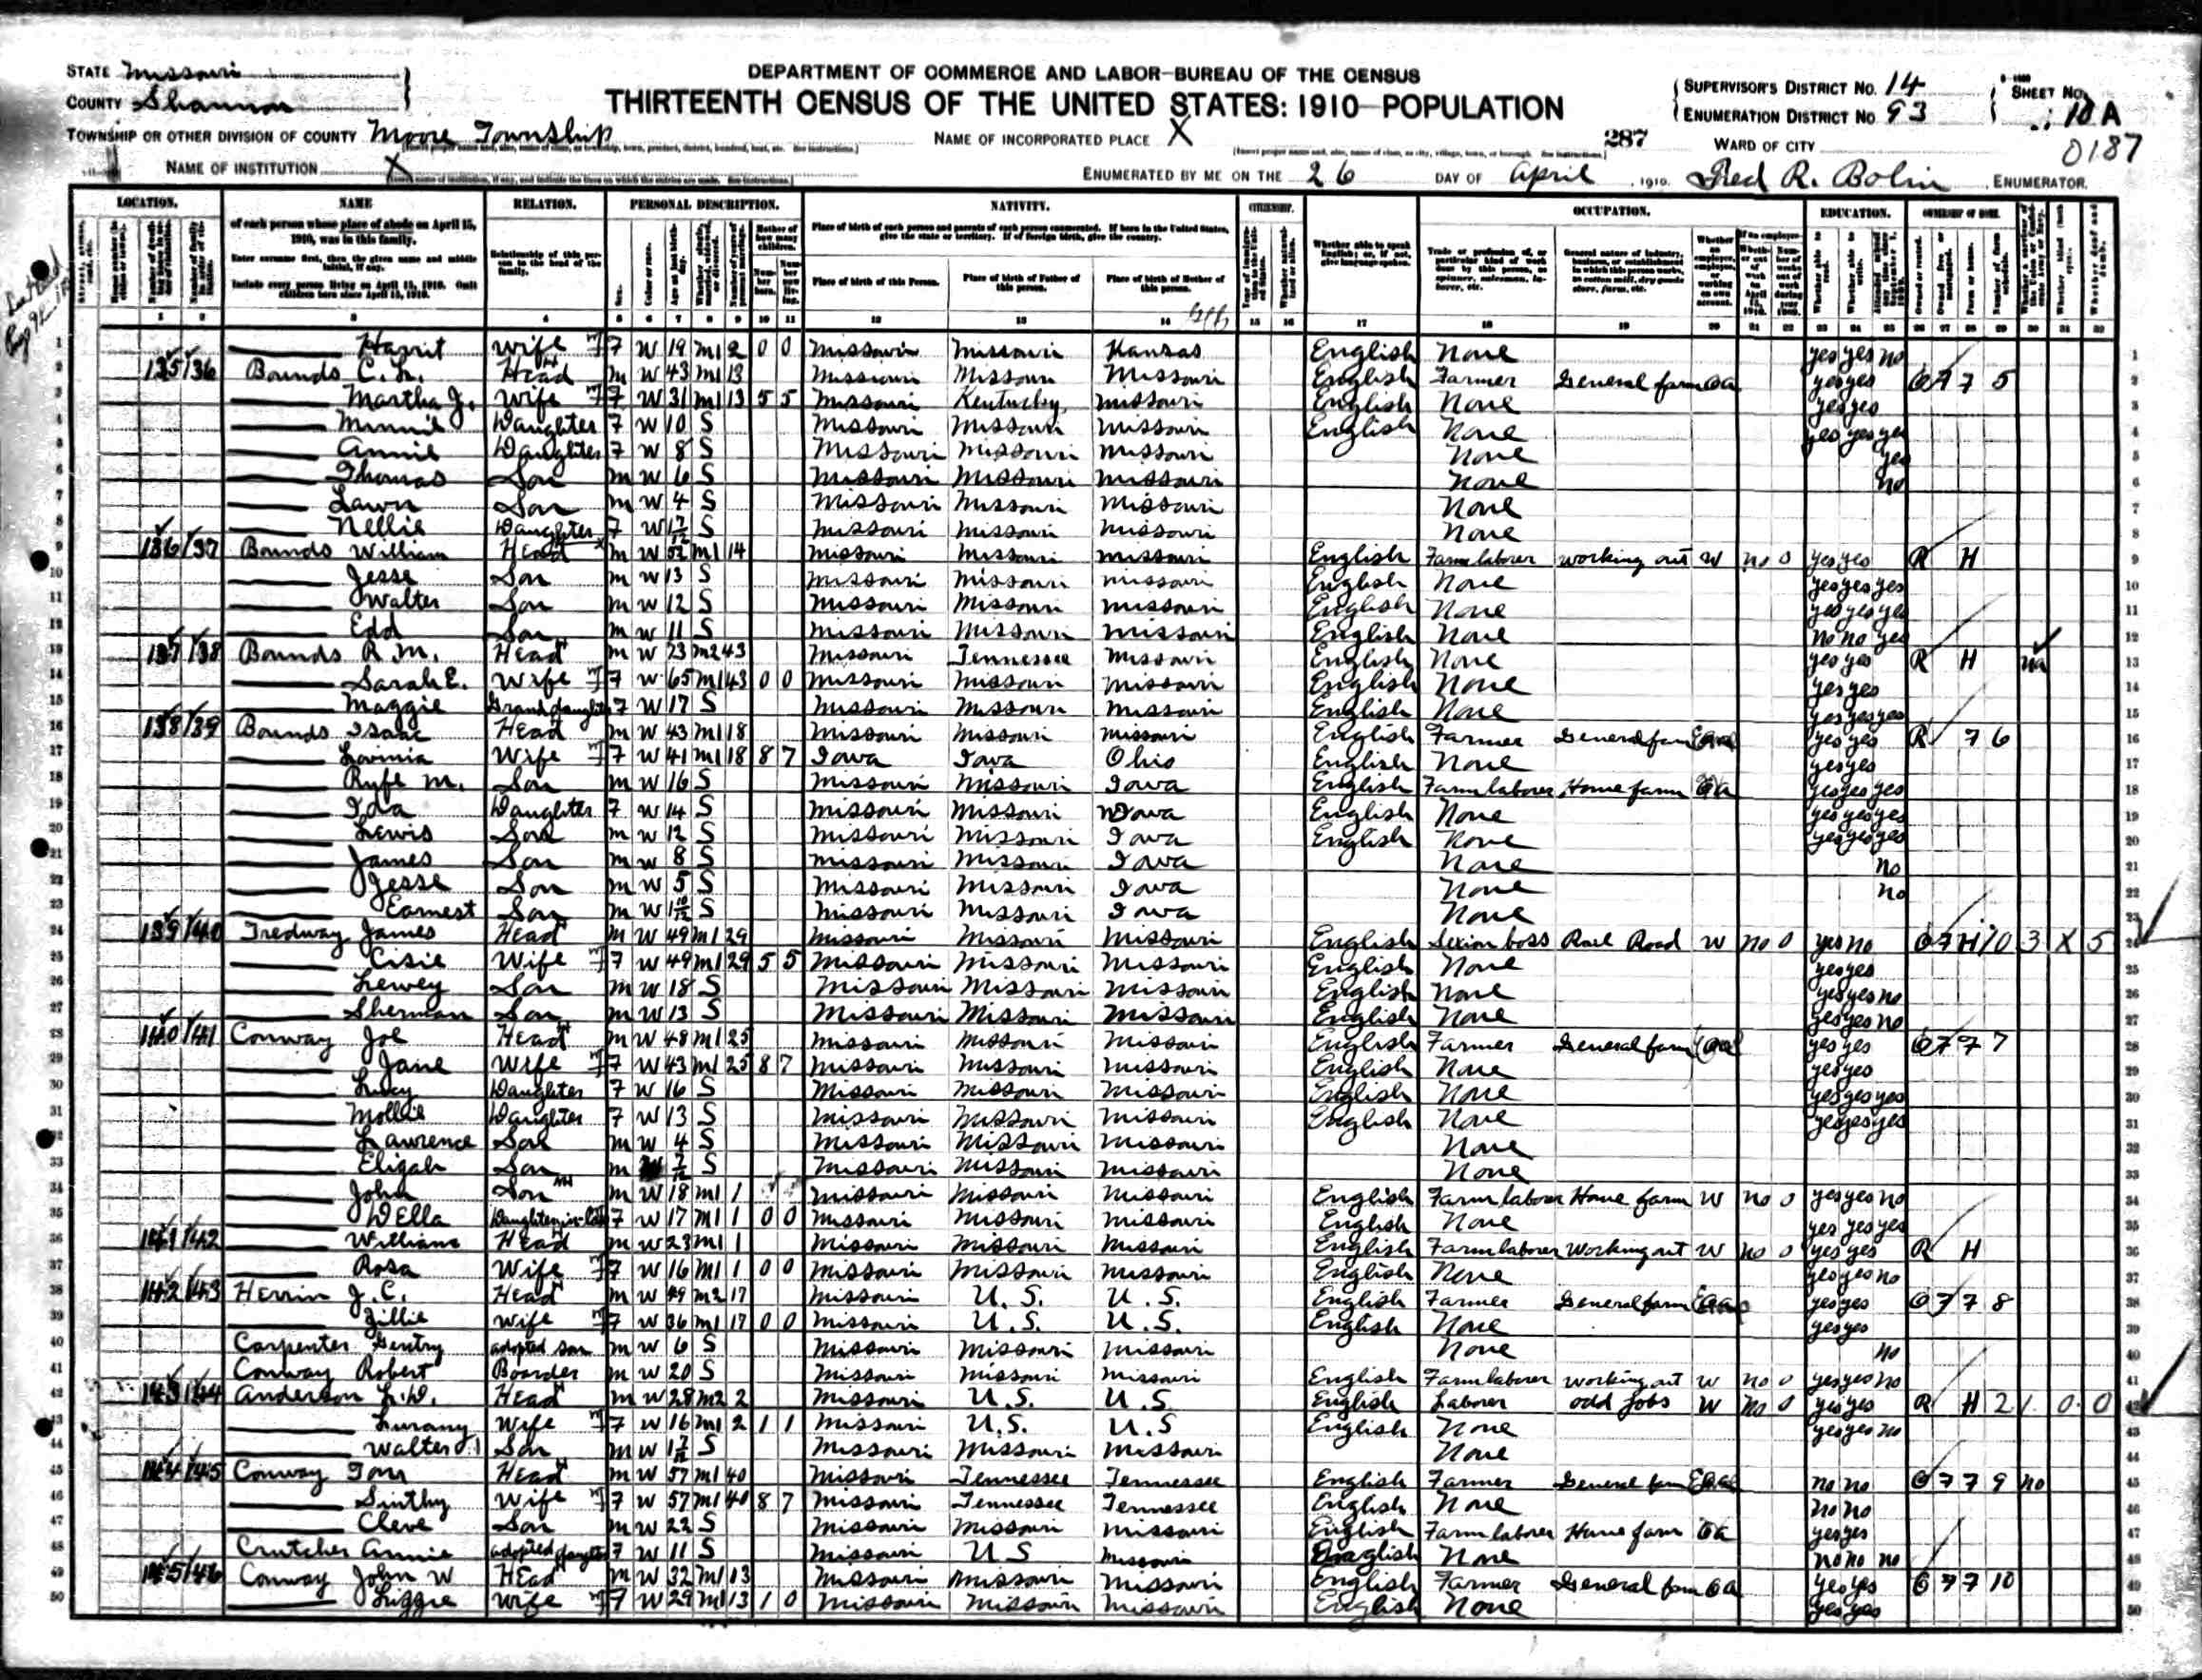 STATE Missouri
COUNTY Shannon
TOWNSHIP OR OTHER DIVISION OF COUNTY Moore Township
NAME OF INSTITUTION X
DEPARTMENT OF COMMERCE AND LABOR–BUREAU OF THE CENSUS
THIRTEENTH CENSUS OF THE UNITED STATES: 1910–POPULATION
NAME OF INCORPORATED PLACE X
287
ENUMERATED BY ME ON THE 26 DAY OF April, 1910. Fred R. Bolin, ENUMERATOR.
SUPERVISOR'S DISTRICT No. 14
ENUMERATION DISTRICT No 93
SHEET No. 10 A
WARD OF CITY
0187
LOCATION. NAME RELATION. PERSONAL DESCRIPTION. NATIVITY. CITIZENSHIP. OCCUPATION. EDUCATION. OWNERSHIP OF HOME.
of each person whose place of abode on April 15, 1910, was in this family.
Enter surname first, then the given name and middle initial, if any.
Include every person living on April 15, 1910. Omit children born since April 15, 1910.
Relationship of this person to the head of the family.
Place of birth of each person and parents of each person enumerated. If born in the United States, give the state or territory. If of foreign birth, give the country.
Place of birth of this Person. Place of birth of Father of this person. Place of birth of Mother of this person.
Whether able to speak English; or, if not, give language spoken.
1 Harrit Wife F W 19 M1 2 0 0 Missouri Missouri Kansas English None yes yes no
2 135 136 Bounds C. L. Head M W 43 M1 13 Missouri Missouri Missouri English Farmer General farm OA yes yes O F F 5
3 Martha J. Wife F W 31 M1 13 5 5 Missouri Kentucky Missouri English None yes yes
4 Minnie Daughter F W 10 S Missouri Missouri Missouri English None yes yes yes
5 Annie Daughter F W 8 S Missouri Missouri Missouri None yes
6 Thomas Son M W 6 S Missouri Missouri Missouri None no
7 Lawn Son M W 4 S Missouri Missouri Missouri None
8 Nellie Daughter F W S Missouri Missouri Missouri None
9 136 137 Bounds William Head M W 52 M1 14 Missouri Missouri Missouri English Farm laborer working out W no 0 yes yes R H
10 Jesse Son M W 13 S Missouri Missouri Missouri English None yes yes yes
11 Walter Son M W 12 S Missouri Missouri Missouri English None yes yes yes
12 Edd Son M W 11 S Missouri Missouri Missouri English None no no yes
13 137 138 Bounds R. M. Head M W 73 M2 43 Missouri Tennessee Missouri English None yes yes R H UA
14 Sarah E. Wife F W 65 M1 43 0 0 Missouri Missouri Missouri English None yes yes
15 Maggie Granddaughter F W 17 S Missouri Missouri Missouri English None yes yes yes
16 138 139 Bounds Isaac Head M W 43 M1 18 Missouri Missouri Missouri English Farmer General farm yes yes R F 6
17 Lovinia Wife F W 41 M1 18 8 7 Iowa Iowa Ohio English None yes yes
18 Ryfe M. Son M W 16 S Missouri Missouri Iowa English Farm laborer Home farm yes yes yes
19 Ida Daughter F W 14 S Missouri Missouri Iowa English None yes yes yes
20 Lewis Son M W 12 S Missouri Missouri Iowa English None yes yes yes
21 James Son M W 8 S Missouri Missouri Iowa None no
22 Jesse Son M W 5 S Missouri Missouri Iowa None no
23 Earnest Son M W 1 10/12 S Missouri Missouri Iowa None
24 139 140 Tredway James Head M W 49 M1 29 Missouri Missouri Missouri English Sexion boss Rail Road W no 0 yes no O F H 10 3 X 5
25 Cisie Wife F W 49 M1 29 5 5 Missouri Missouri Missouri English None yes yes
26 Lewey Son M W 18 S Missouri Missouri Missouri English None yes yes no
27 Sherman Son M W 13 S Missouri Missouri Missouri English None yes yes no
28 140 141 Conway Joe Head M W 48 M1 25 Missouri Missouri Missouri English Farmer General farm yes yes O F F 7
29 Jane Wife F W 43 M1 25 8 7 Missouri Missouri Missouri English None yes yes
30 Lucy Daughter F W 16 S Missouri Missouri Missouri English None yes yes yes
31 Mollie Daughter F W 13 S Missouri Missouri Missouri English None yes yes yes
32 Lawrence Son M W 4 S Missouri Missouri Missouri None
33 Elizah Son M W S Missouri Missouri Missouri None
34 John Son M W 18 M1 1 Missouri Missouri Missouri English Farm laborer Home farm W no 0 yes yes no
35 DElla Daughter-in-law F W 17 M1 1 0 0 Missouri Missouri Missouri English None yes yes yes
36 141 142 William Head M W 23 M1 1 Missouri Missouri Missouri English Farm laborer Working out W no 0 yes yes R H
37 Rosa Wife F W 16 M1 1 0 0 Missouri Missouri Missouri English None yes yes no
38 142 143 Herrin J. C. Head M W 49 M2 17 Missouri U. S. U. S. English Farmer General farm yes yes O F F 8
39 Zillie Wife F W 36 M1 17 0 0 Missouri U. S. U. S. English None yes yes
40 Carpenter Gentry adopted son M W 6 S Missouri Missouri Missouri None no
41 Conway Robert Boarder M W 20 S Missouri Missouri Missouri English Farm laborer working out W no 0 yes yes no
42 143 144 Anderson L. D. Head M W 28 M2 2 Missouri U. S. U. S English Laborer odd jobs W no 0 yes yes R H 2 1 0 0
43 Lurany Wife F W 16 M1 2 1 1 Missouri U. S. U. S English None yes yes no
44 Walter J. Son M W S Missouri Missouri Missouri None
45 144 145 Conway Tom Head M W 57 M1 40 Missouri Tennessee Tennessee English Farmer General farm no no O F F 9 no
46 Sinthy Wife F W 57 M1 40 8 7 Missouri Tennessee Tennessee English None no no
47 Cleve Son M W 22 S Missouri Missouri Missouri English Farm laborer Home farm OA yes yes
48 Crutcher Annie adopted daughter F W 11 S Missouri U S Missouri English None no no no
49 145 146 Conway John W Head M W 32 M1 13 Missouri Missouri Missouri English Farmer General farm OA yes yes O F F 10
50 Lizzie Wife F W 29 M1 13 1 0 Missouri Missouri Missouri English None yes yes